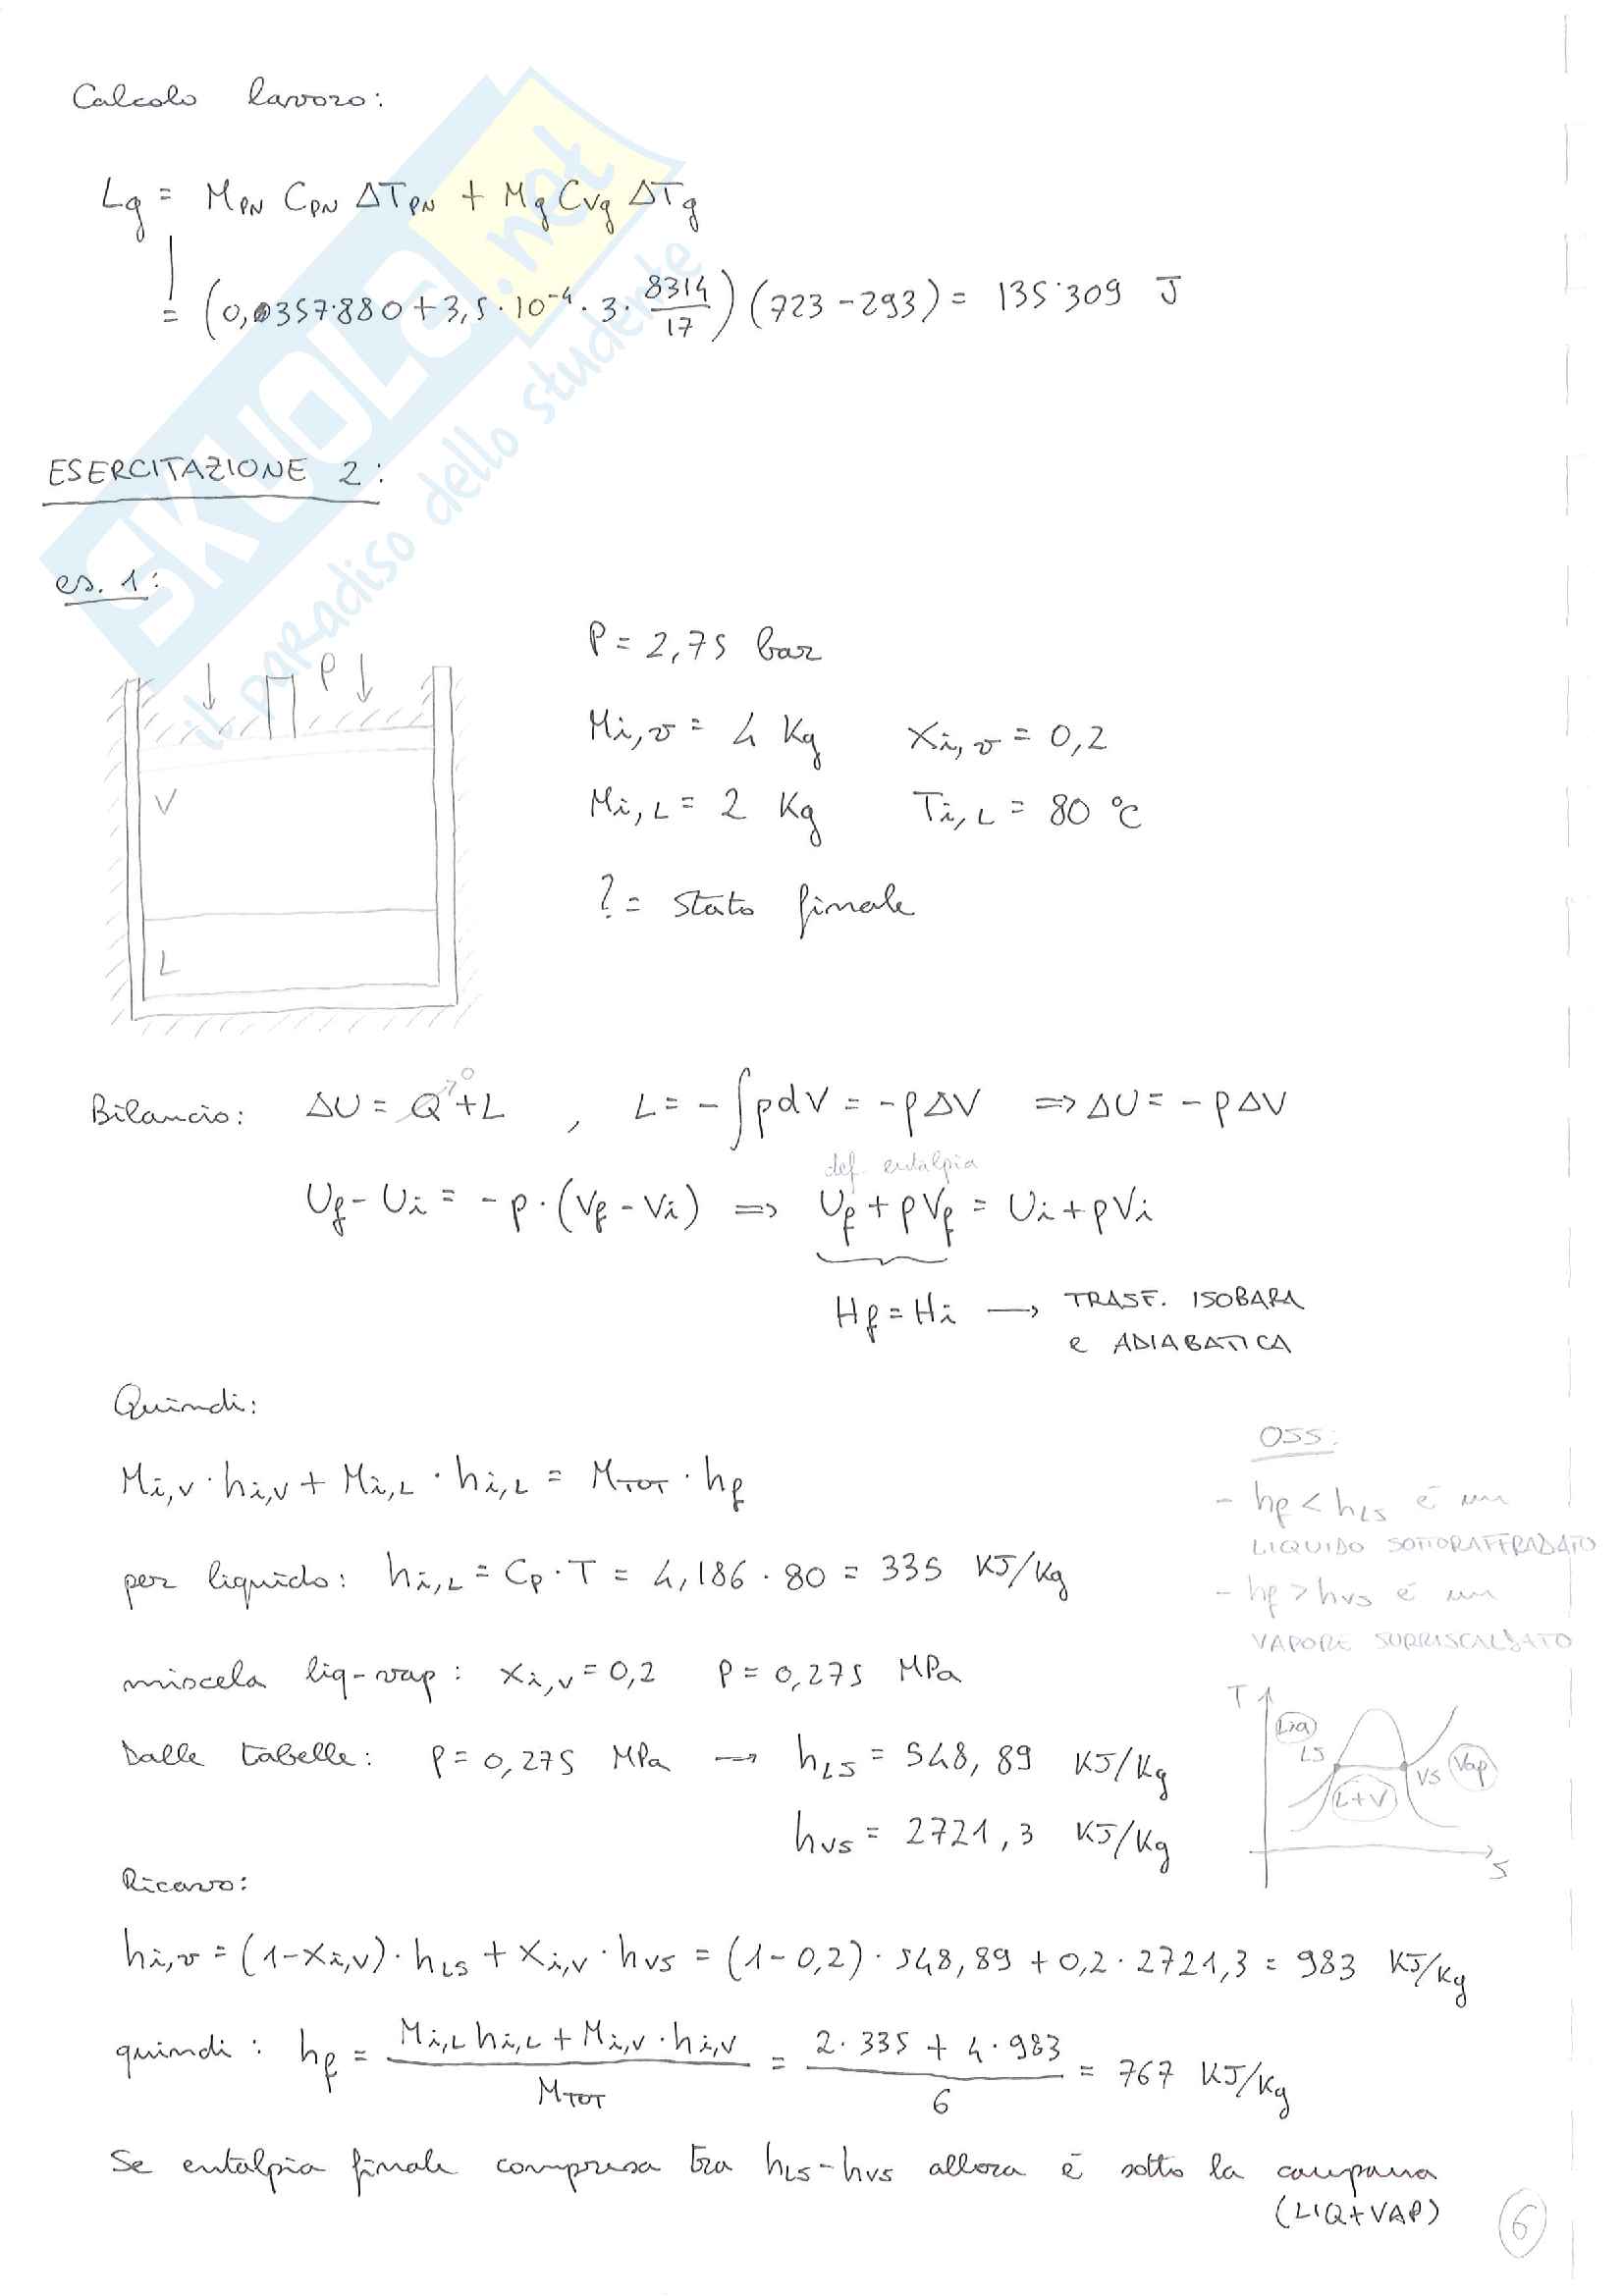 Calcolo lavoro:
Lg = MPN CPN ΔTPN + Mg Cvg ΔTg
= (0,0357·880 + 3,5·10⁻⁴·3·8314/17)(723-293) = 135·309 J
SKUOLA.net
il paradiso dello studente
ESERCITAZIONE 2:
es. 1:
P
V
L
P = 2,75 bar
Mi,v = 4 Kg Xi,v = 0,2
Mi,L = 2 Kg Ti,L = 80 °C
? = stato finale
Bilancio: ΔU = Q→0 + L , L = -∫pdV = -pΔV => ΔU = -pΔV
def. entalpia
Uf - Ui = -p·(Vf - Vi) => Uf + pVf = Ui + pVi
Hf = Hi → TRASF. ISOBARA
e ADIABATICA
Quindi:
Mi,v·hi,v + Mi,L·hi,L = MTOT·hf
per liquido: hi,L = Cp·T = 4,186·80 = 335 KJ/Kg
miscela liq-vap: Xi,v = 0,2 P = 0,275 MPa
Dalle tabelle: P = 0,275 MPa → hLS = 548,89 KJ/Kg
hVS = 2721,3 KJ/Kg
OSS:
- hf < hLS è un
LIQUIDO SOTTORAFFRADATO
- hf > hVS è un
VAPORE SURRISCALDATO
T
Liq
LS
L+V
VS
Vap
S
Ricavo:
hi,v = (1-Xi,v)·hLS + Xi,v·hVS = (1-0,2)·548,89 + 0,2·2721,3 = 983 KJ/Kg
quindi: hf = (Mi,L hi,L + Mi,v·hi,v)/MTOT = (2·335 + 4·983)/6 = 767 KJ/Kg
Se entalpia finale compresa tra hLS-hVS allora è sotto la campana
(LIQ+VAP)
6